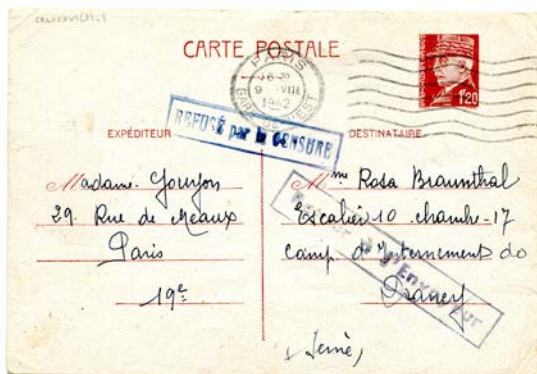 CARTE POSTALE
PARIS
9 VIII
1942
GARE DE L'EST
1f20
REFUSÉ par la CENSURE
EXPÉDITEUR
DESTINATAIRE
Madame Goujon
29. Rue de Meaux
Paris
19e
Mme Rosa Braunthal
Escalier 10 chambre-17
Camp d'Internement de
Drancy
Seine
Retour à l'Envoyeur